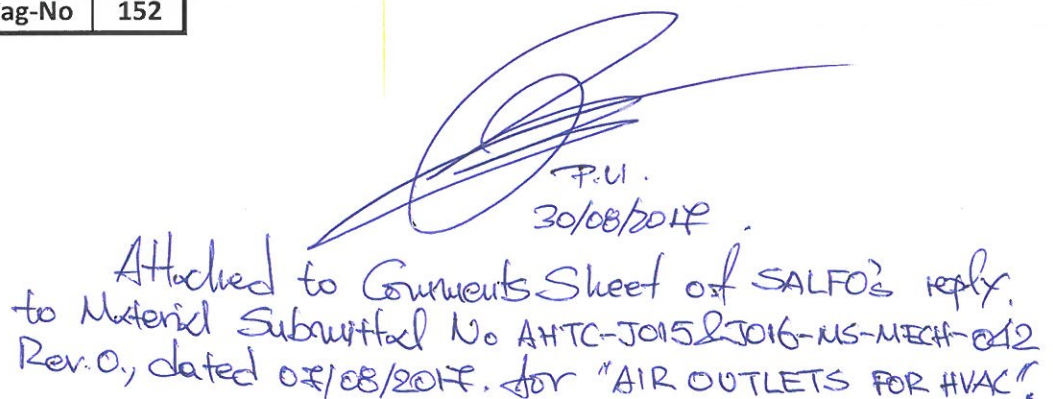 ag-No 152
P.U.
30/08/2017.
Attached to Comments Sheet of SALFO's reply.
to Material Submittal No AHTC-J015&J016-MS-MECH-042
Rev.0., dated 07/08/2017. for "AIR OUTLETS FOR HVAC".